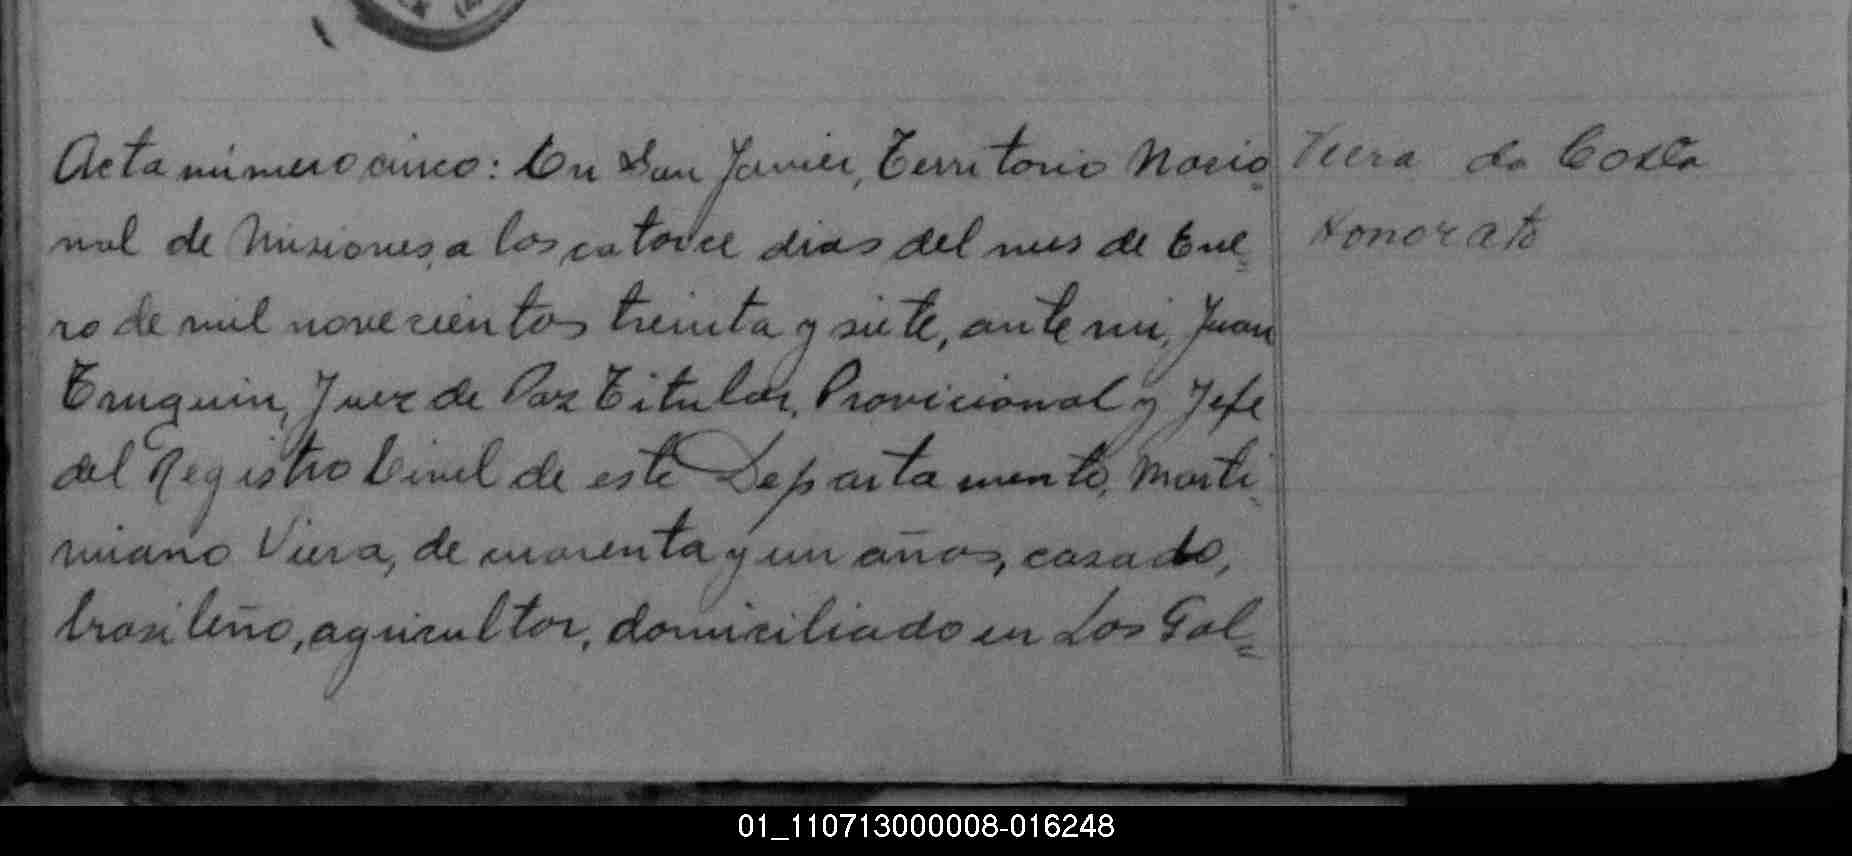 Acta número cinco: En San Javier, Territorio Nacio
nal de Misiones, a los catorce dias del mes de Ene
ro de mil novecientos treinta y siete, ante mi, Juan
Truquin, Juez de Paz Titular, Provicional y Jefe
del Registro Civil de este Departamento, Marti
niano Viera, de cuarenta y un años, casado,
brasileño, agricultor, domiciliado en Los Gal=
Viera da Costa
Honorato
01_110713000008-016248